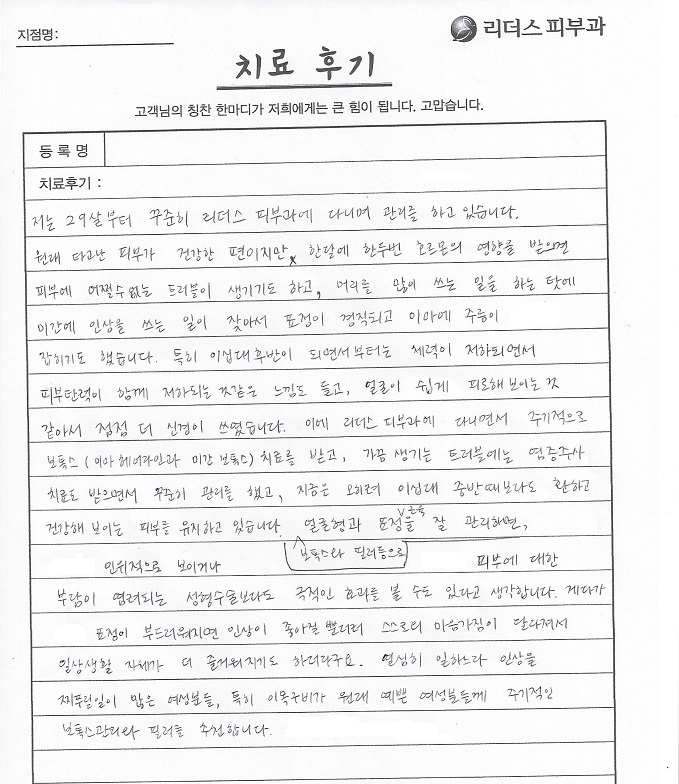 지점명:
리더스 피부과
치료 후기
고객님의 칭찬 한마디가 저희에게는 큰 힘이 됩니다. 고맙습니다.
등 록 명
치료후기 :
저는 29살부터 꾸준히 리더스 피부과에 다니며 관리를 하고 있습니다.
원래 타고난 피부가 건강한 편이지만, 한달에 한두번 호르몬의 영향을 받으면
피부에 어쩔수없는 트러블이 생기기도 하고, 머리를 많이 쓰는 일을 하는 탓에
미간에 인상을 쓰는 일이 잦아서 표정이 경직되고 이마에 주름이
잡히기도 했습니다. 특히 이십대후반이 되면서부터는 체력이 저하되면서
피부탄력이 함께 저하되는 것같은 느낌도 들고, 얼굴이 쉽게 피로해보이는 것
같아서 점점 더 신경이 쓰였습니다. 이에 리더스 피부과에 다니면서 주기적으로
보톡스 (이마 헤어라인과 미간 보톡스) 치료를 받고, 가끔 생기는 트러블에는 염증주사
치료도 받으면서 꾸준히 관리를 했고, 지금은 오히려 이십대 중반때보다도 환하고
건강해 보이는 피부를 유지하고 있습니다. 얼굴형과 표정근육을 잘 관리하면,
보톡스와 필러등으로
인위적으로 보이거나 피부에 대한
부담이 염려되는 성형수술보다도 극적인 효과를 볼 수도 있다고 생각합니다. 게다가
표정이 부드러워지면 인상이 좋아질 뿐더러 스스로의 마음가짐이 달라져서
일상생활 자체가 더 즐거워지기도 하더라구요. 열심히 일하느라 인상을
찌푸릴일이 많은 여성분들, 특히 이목구비가 원래 예쁜 여성분들께 주기적인
보톡스관리와 필러를 추천합니다.